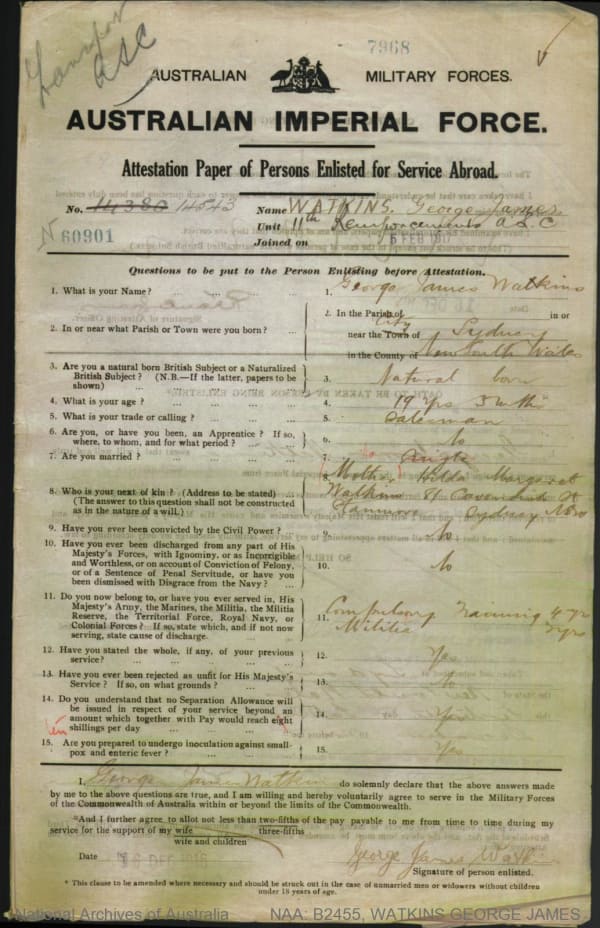 Transfer
ASC
7968
AUSTRALIAN MILITARY FORCES.
AUSTRALIAN IMPERIAL FORCE.
Attestation Paper of Persons Enlisted for Service Abroad.
No. 14380 14543 Name WATKINS. George James
N 60901 Unit 11th Reinforcements A.S.C
Joined on 6 FEB 1917
Questions to be put to the Person Enlisting before Attestation.
1. What is your Name? ... ... ... 1. George James Watkins
2. In or near what Parish or Town were you born? ... 2. In the Parish of in or
City
near the Town of Sydney
in the County of New South Wales
3. Are you a natural born British Subject or a Naturalized
British Subject? (N.B.—If the latter, papers to be
shown) ... 3. Natural born
4. What is your age? ... 4. 19 yrs 5 mths
5. What is your trade or calling? ... 5. Salesman
6. Are you, or have you been, an Apprentice? If so,
where, to whom, and for what period? ... 6. No
7. Are you married? ... 7. Single
8. Who is your next of kin? (Address to be stated) ... 8. (Mother) Hilda Margaret
(The answer to this question shall not be construed Watkins 8 Cavendish St
as in the nature of a will.) Stanmore Sydney NSW
9. Have you ever been convicted by the Civil Power? 9. No
10. Have you ever been discharged from any part of His
Majesty's Forces, with Ignominy, or as Incorrigible
and Worthless, or on account of Conviction of Felony,
or of a Sentence of Penal Servitude, or have you
been dismissed with Disgrace from the Navy? ... 10. No
11. Do you now belong to, or have you ever served in, His
Majesty's Army, the Marines, the Militia, the Militia
Reserve, the Territorial Force, Royal Navy, or
Colonial Forces? If so, state which, and if not now
serving, state cause of discharge. 11. Compulsory Training 4 yr
Militia yrs
12. Have you stated the whole, if any, of your previous
service? ... 12. Yes
13. Have you ever been rejected as unfit for His Majesty's
Service? If so, on what grounds? ... 13. No
14. Do you understand that no Separation Allowance will
be issued in respect of your service beyond an
amount which together with Pay would reach eight
ten
shillings per day ... 14. Yes
15. Are you prepared to undergo inoculation against small-
pox and enteric fever? ... 15. Yes
I, George James Watkins do solemnly declare that the above answers made
by me to the above questions are true, and I am willing and hereby voluntarily agree to serve in the Military Forces
of the Commonwealth of Australia within or beyond the limits of the Commonwealth.
*And I further agree to allot not less than two-fifths of the pay payable to me from time to time during my
three-fifths
service for the support of my wife
wife and children
Date 16 DEC 1916 George James Watkin
Signature of person enlisted.
* This clause to be amended where necessary and should be struck out in the case of unmarried men or widowers without children
under 18 years of age.
National Archives of Australia NAA: B2455, WATKINS GEORGE JAMES